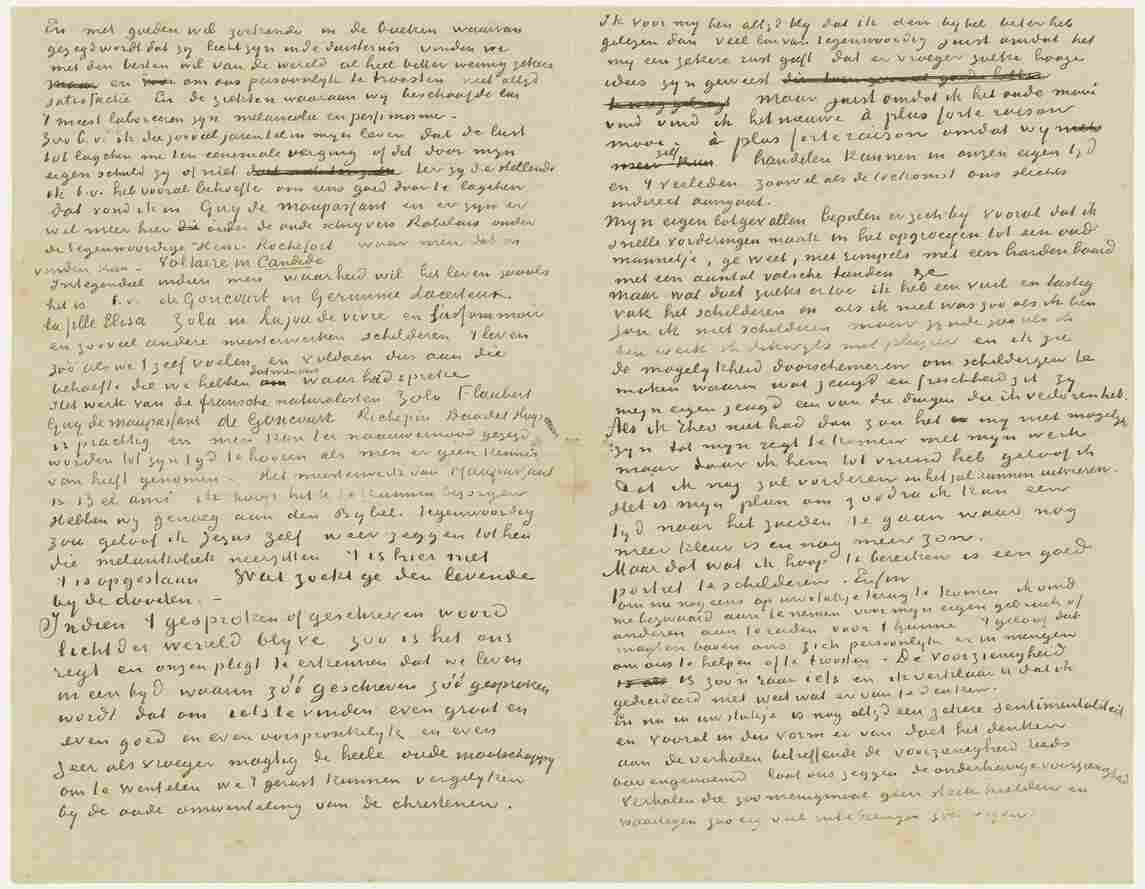 En met goeden wil zoekende in de boeken waarvan
gezegd wordt dat zy licht zyn in de duisternis vinden we
met den besten wil van de wereld al heel bitter weinig zekers
en om ons persoonlyk te troosten niet altyd
satisfactie En de ziekten waaraan wy beschaafde lui
't meest laboreeren zyn melancolie en pessimisme.
Zoo b.v. ik die zooveel jaren tel in myn leven dat de lust
tot lagchen me ten eenemale verging of dit door myn
eigen schuld zy of niet ter zy de stellende
ik b.v. heb vooral behoefte om eens goed door te lagchen
Dat vond ik in Guy de maupassant en er zyn er
wel meer hier onder de oude schryvers Rabelais onder
de tegenwoordige Henri Rochefort waar men dat in
vinden kan. Voltaire in Candide
Integendeel indien men waarheid wil het leven zooals
het is b.v. de Goncourt in Germinie Lacerteux.
La fille Elisa Zola in La joie de vivre en L'assommoir
en zooveel andere meesterwerken schilderen 't leven
zoo als we 't zelf voelen en voldoen dus aan die
behoefte die we hebben dat men ons waarheid spreke
Het werk van de fransche naturalisten Zola Flaubert
Guy de maupassant de Goncourt Richepin Daudet Huysmans
is prachtig en men kan ter naauwernood gezegd
worden tot zyn tyd te hooren als men er geen kennis
van heeft genomen. Het meesterwerk van Maupassant
is Bel ami ik hoop het U te kunnen bezorgen
Hebben wy genoeg aan den Bybel. Tegenwoordig
zou geloof ik Jezus zelf weer zeggen tot hen
die melankoliek neerzitten 't is hier niet
't is opgestaan Wat zoekt ge den levende
by de dooden.–
Indien 't gesproken of geschreven woord
licht der wereld blyve zoo is het ons
regt en onzen pligt te erkennen dat we leven
in een tyd waarin zóó geschreven zóó gesproken
wordt dat om iets te vinden even groot en
even goed en even oorspronkelyk en even
zeer als vroeger magtig de heele oude maatschappy
om te wentelen we 't gerust kunnen vergelyken
by de oude omwenteling van de christenen.
Ik voor my ben altyd bly dat ik den bybel beter heb
gelezen dan veel lui van tegenwoordig juist omdat het
my een zekere rust geeft dat er vroeger zulke hooge
idees zyn geweest
Maar juist omdat ik het oude mooi
vind vind ik het nieuwe à plus forte raison
mooi. à plus forte raison omdat wy
zelf handelen kunnen in onzen eigen tyd
en 't verleden zoowel als de toekomst ons slechts
indirect aangaat.
Myn eigen lotgevallen bepalen er zich by vooral dat ik
snelle vorderingen maak in het opgroeijen tot een oud
mannetje, ge weet, met rimpels met een harden baard
met een aantal valsche tanden &c
Maar wat doet zulks er toe ik heb een vuil en lastig
vak het schilderen en als ik niet was zoo als ik ben
zou ik niet schilderen maar zynde zoo als ik
ben werk ik dikwyls met pleizier en ik zie
de mogelykheid doorschemeren om schilderyen te
maken waarin wat jeugd en frischheid zit zy
myn eigen jeugd een van die dingen die ik verloren heb.
Als ik Theo niet had dan zou het my niet mogelyk
zyn tot myn regt te komen met myn werk
maar daar ik hem tot vriend heb geloof ik
dat ik nog zal vorderen en het zal kunnen uitvieren.
Het is myn plan om zoodra ik kan een
tyd naar het zuiden te gaan waar nog
meer kleur is en nog meer zon.
Maar dat wat ik hoop te bereiken is een goed
portret te schilderen. Enfin
om nu nog eens op uw stukje terug te komen ik vind
me bezwaard aan te nemen voor myn eigen gebruik of
anderen aan te raden voor 't hunne 't geloof dat
magten boven ons zich persoonlyk er in mengen
om ons te helpen of te troosten. De voorzienigheid
is zoo'n raar iets en ik verklaar u dat ik
gedecideerd niet weet wat er van te denken.
En nu in uw stukje is nog altyd een zekere sentimentaliteit
en vooral in den vorm er van doet het denken
aan de verhalen betreffende de voorzienigheid reeds
bovengenoemd laat ons zeggen de onderhavige voorzienigheid
verhalen die zoo menigmaal geen steek hielden en
waartegen zoo erg veel intebrengen zou zyn.